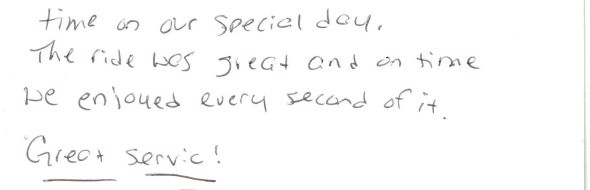 time on our special day.
The ride was great and on time
we enjoyed every second of it.
Great servic!